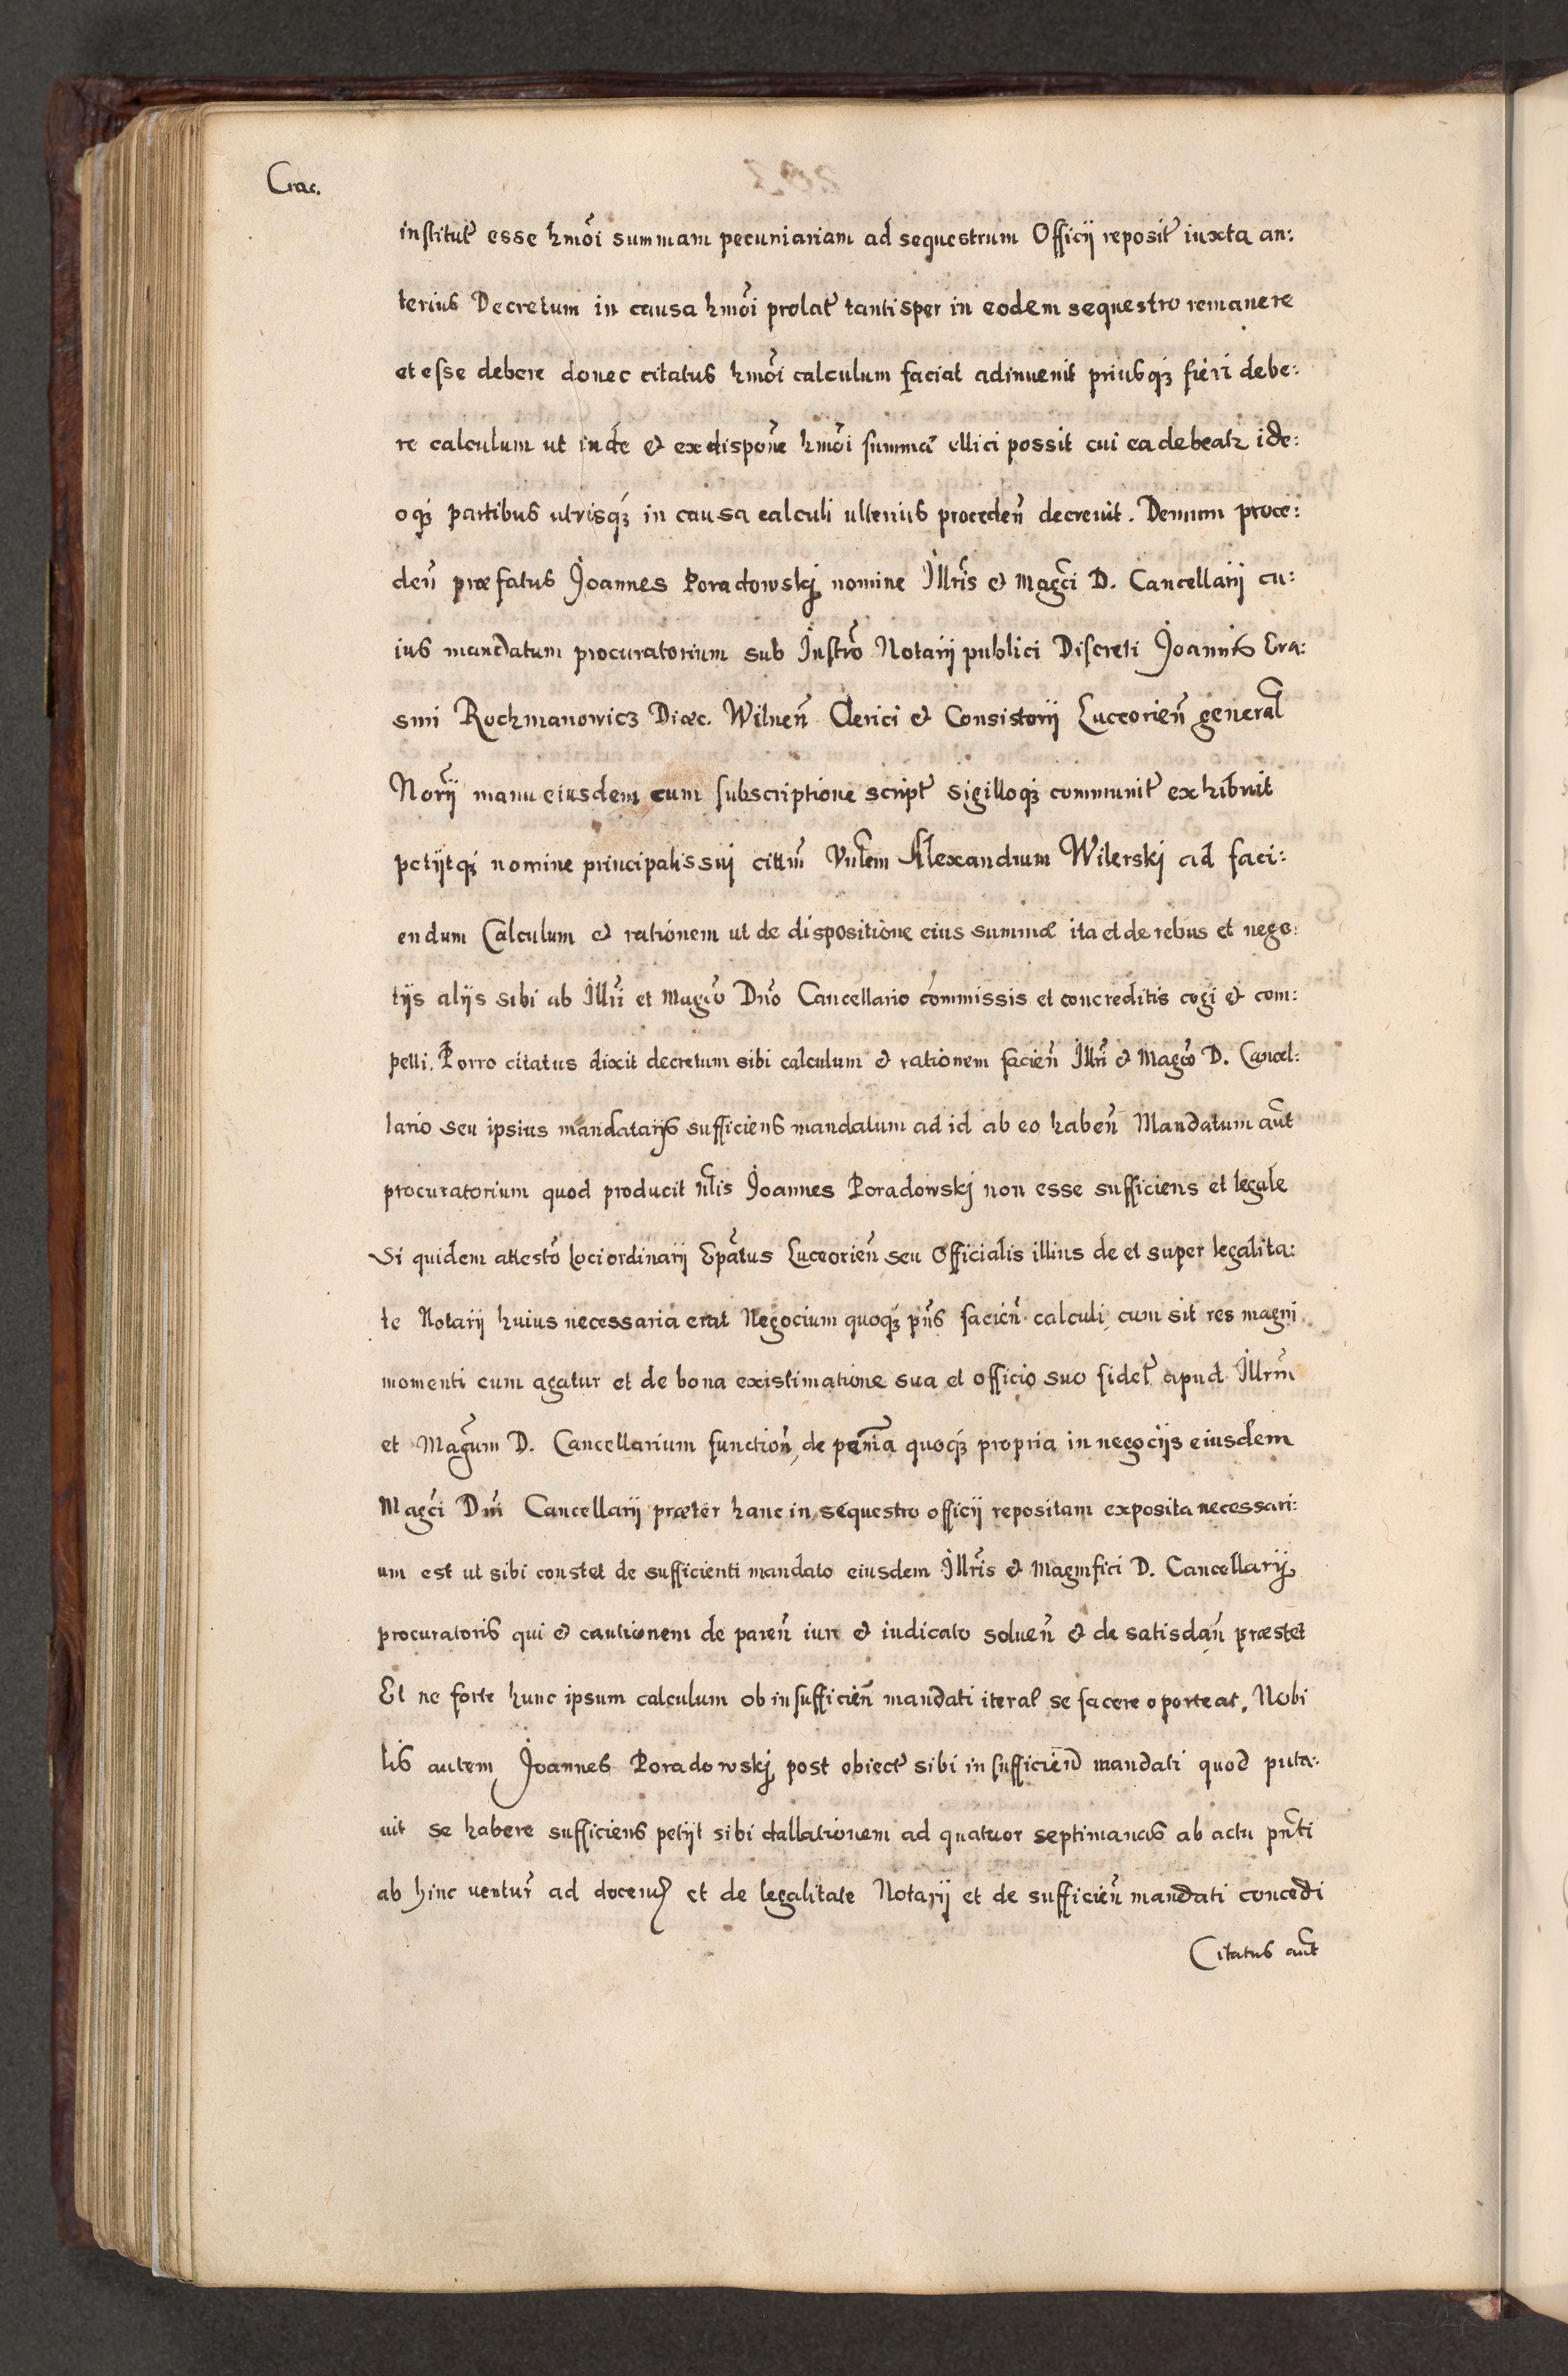 Crac.
institut̃ esse hmõi summam pecuniariam ad sequestrum Officij reposit̃ iuxta an:
terius Decretum in causa hmõi prolat̃ tantisper in eodem sequestro remanere
et esse debere donec citatus hmõi calculum faciat adinuenit priusq́ꝫ fieri debe:
re calculum ut inde & ex dispone͂ hmõi summæ͂ ellici possit cui ea debeatr ide:
oq́ꝫ partibus utrisq́ꝫ in causa calculi ulterius proceden͂ decreuit. Demum proce:
den͂ præfatus Joannes Poradowskj nomine Illris͂ & Magci͂ D. Cancellarij cu:
ius mandatum procuratorium sub Instro͂ Notarij publici Discreti Joannis Era:
smi Rochmanowicz Diœc. Wilnen͂ Clerici & Consistorij Luceorien͂ general͂
Norij͂ manu eiusdem cum subscriptione script̃ sigilloq́ꝫ communit̃ exhibuit
petijtq́ꝫ nomine principalis sui cittm͂ Vnlem͂ Alexandrum Wilerskj ad faci:
endum Calculum & rationem ut de dispositione eius summæ ita et de rebus et nego:
tijs alijs sibi ab Illri͂ et Magco͂ Dno͂ Cancellario commissis et concreditis cogi & com:
pelli. Porro citatus dixit decretum sibi calculum & rationem facien͂ Illri͂ & Magco͂ D. Cancel:
lario seu ipsius mandatarijs sufficiens mandatum ad id ab eo haben͂ Mandatum aut͂
procuratorium quod producit nlis͂ Joannes Poradowskj non esse sufficiens et legale
Si quidem attesto͂ loci ordinarij Epatus͂ Luceorien͂ seu Officialis illius de et super legalita:
te Notarij huius necessaria erat Negocium quoq́ꝫ pns͂ facien͂ calculi, cum sit res magni
momenti cum agatur et de bona existimatione sua et officio suo fidel̃ apud Illrm͂
et Magcum͂ D. Cancellarium function͂, de pecnia͂ quoq́ꝫ propria in negocijs eiusdem
Magci͂ Dni͂ Cancellarij præter hanc in sequestro officij repositam exposita necessari:
um est ut sibi constet de sufficienti mandato eiusdem Illris͂ & Magnifici D. Cancellarij
procuratoris qui & cautionem de paren͂ iuri & iudicato soluen͂ & de satisdan͂ præstet
Et ne forte hunc ipsum calculum ob insufficien͂ mandati iteral se facere oporteat. Nobi
lis autem Joannes Poradowskj post obiect̃ sibi insufficien͂ mandati quod puta:
uit se habere sufficiens petijt sibi dallationem ad quatuor septimanas ab actu pnti͂
ab hinc ventur̃ ad docen͂ et de legalitate Notarij et de sufficien͂ mandati concedi
Citatus aut͂